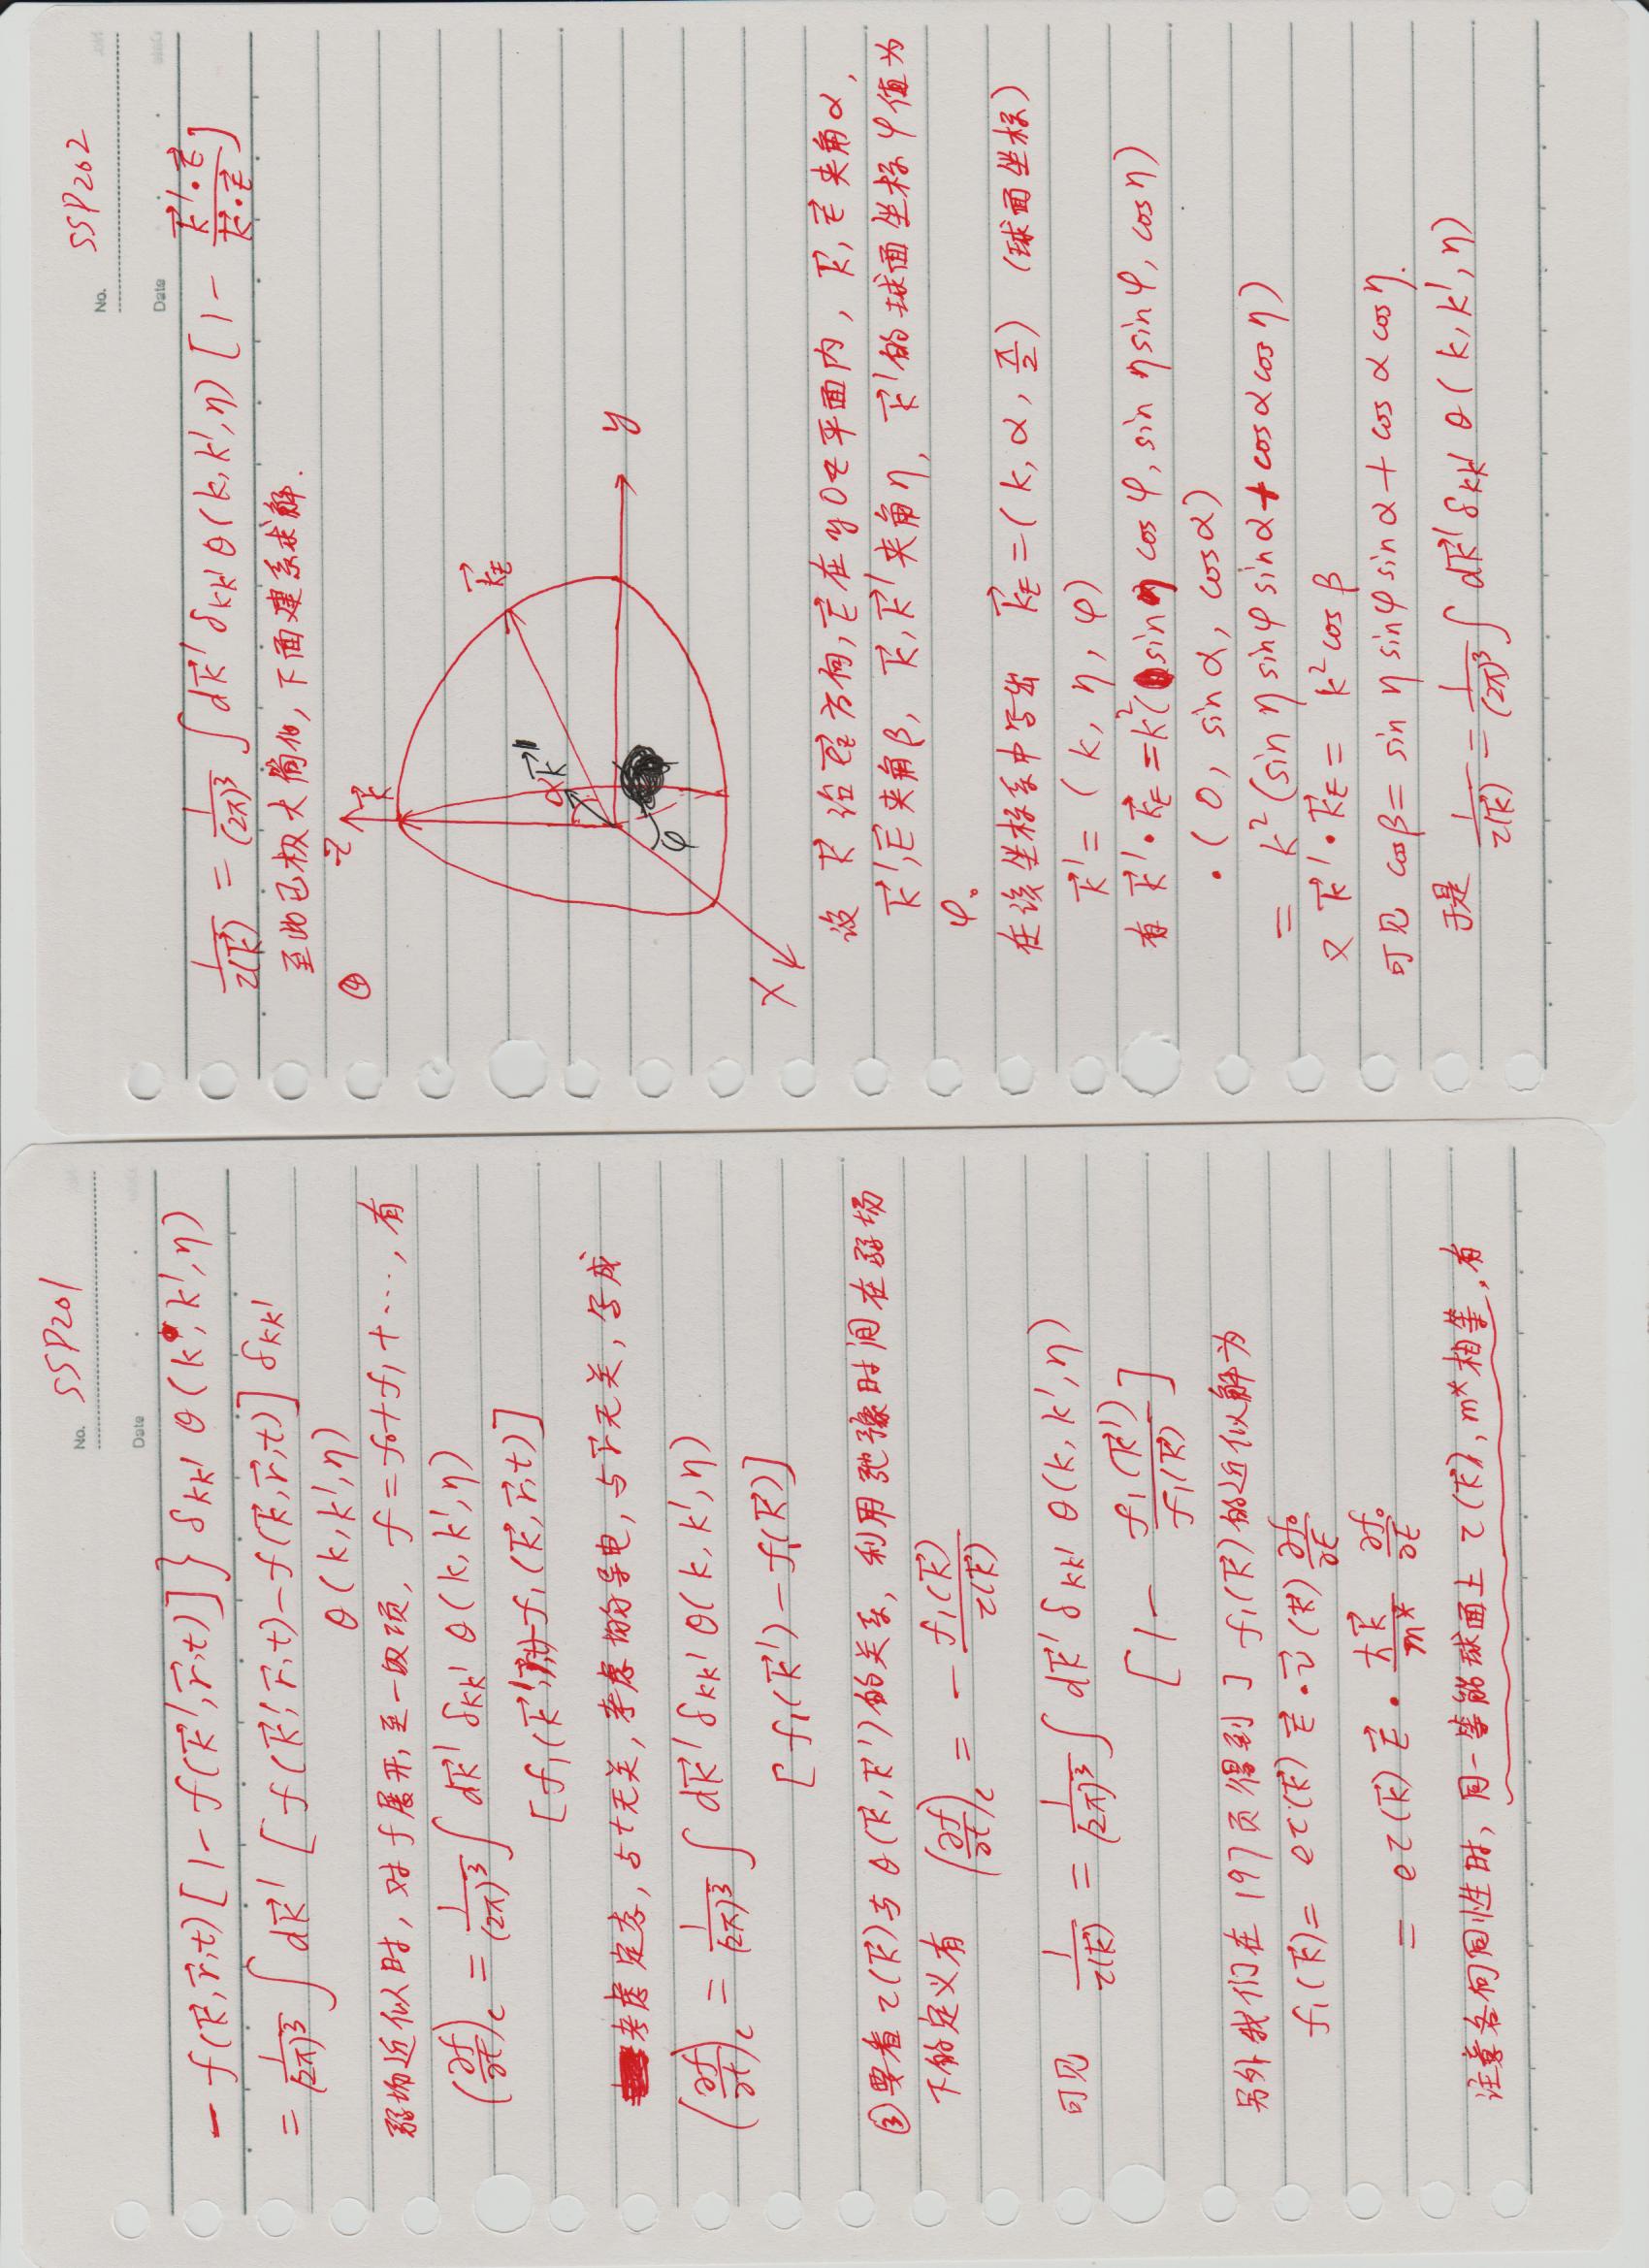 No. SSP201
Date
- f(k⃗,r⃗,t)[1-f(k⃗′,r⃗,t)]} δkk′ θ(k,k′,η)
= 1/(2π)³ ∫ dk⃗′ [f(k⃗′,r⃗,t)-f(k⃗,r⃗,t)] δkk′
θ(k,k′,η)
弱场近似时,对f展开至一级项, f=f₀+f₁+…,有
(∂f/∂t)c = 1/(2π)³ ∫ dk⃗′ δkk′ θ(k,k′,η)
[f₁(k⃗′,r⃗,t)-f₁(k⃗,r⃗,t)]
考虑定态,与t无关,考虑均匀导电,与r⃗无关,写成
(∂f/∂t)c = 1/(2π)³ ∫ dk⃗′ δkk′ θ(k,k′,η)
[f₁(k⃗′)-f₁(k⃗)]
③要看τ(k⃗)与θ(k⃗,k⃗′)的关系,利用弛豫时间在弱场
下的定义有 (∂f/∂t)c = - f₁(k⃗)/τ(k⃗)
可见 1/τ(k⃗) = 1/(2π)³ ∫ dk⃗′ δkk′ θ(k,k′,η)
[1 - f₁(k⃗′)/f₁(k⃗)]
另外我们在197页得到了f₁(k⃗)的近似解为
f₁(k⃗)= eτ(k⃗) E⃗·v⃗(k⃗) ∂f₀/∂E
= eτ(k⃗) E⃗·ħk⃗/m* ∂f₀/∂E
注意各向同性时,同一等能球面上τ(k⃗),m*相等,有
No. SSP202
Date
1/τ(k⃗) = 1/(2π)³ ∫ dk⃗′ δkk′ θ(k,k′,η) [1 - k⃗′·E⃗/k⃗·E⃗]
至此已极大简化,下面建系求解.
④
z
k⃗
k⃗E
α
k⃗′
y
φ
x
设 k⃗ 沿e⃗z方向,E⃗在yOz平面内, k⃗,E⃗夹角α,
k⃗′,E⃗夹角β, k⃗,k⃗′夹角η, k⃗′的球面坐标φ值为
φ。
在该坐标系中写出 k⃗E=(k,α,π/2) (球面坐标)
k⃗′=(k,η,φ)
有 k⃗′·k⃗E=k²(sinη cosφ, sinηsinφ, cosη)
·(0, sinα, cosα)
= k²(sinηsinφsinα+cosαcosη)
又 k⃗′·k⃗E= k²cosβ
可见 cosβ= sinηsinφsinα+cosαcosη.
于是 1/τ(k⃗) = 1/(2π)³ ∫ dk⃗′ δkk′ θ(k,k′,η)